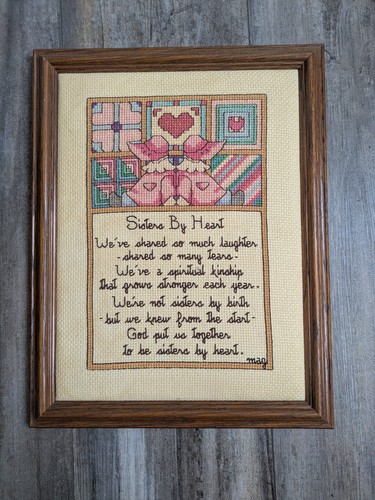 Sisters By Heart
We've shared so much laughter
- shared so many tears.
We've a spiritual kinship
that grows stronger each year.
We're not sisters by birth
- but we knew from the start -
God put us together
to be sisters by heart.
mag